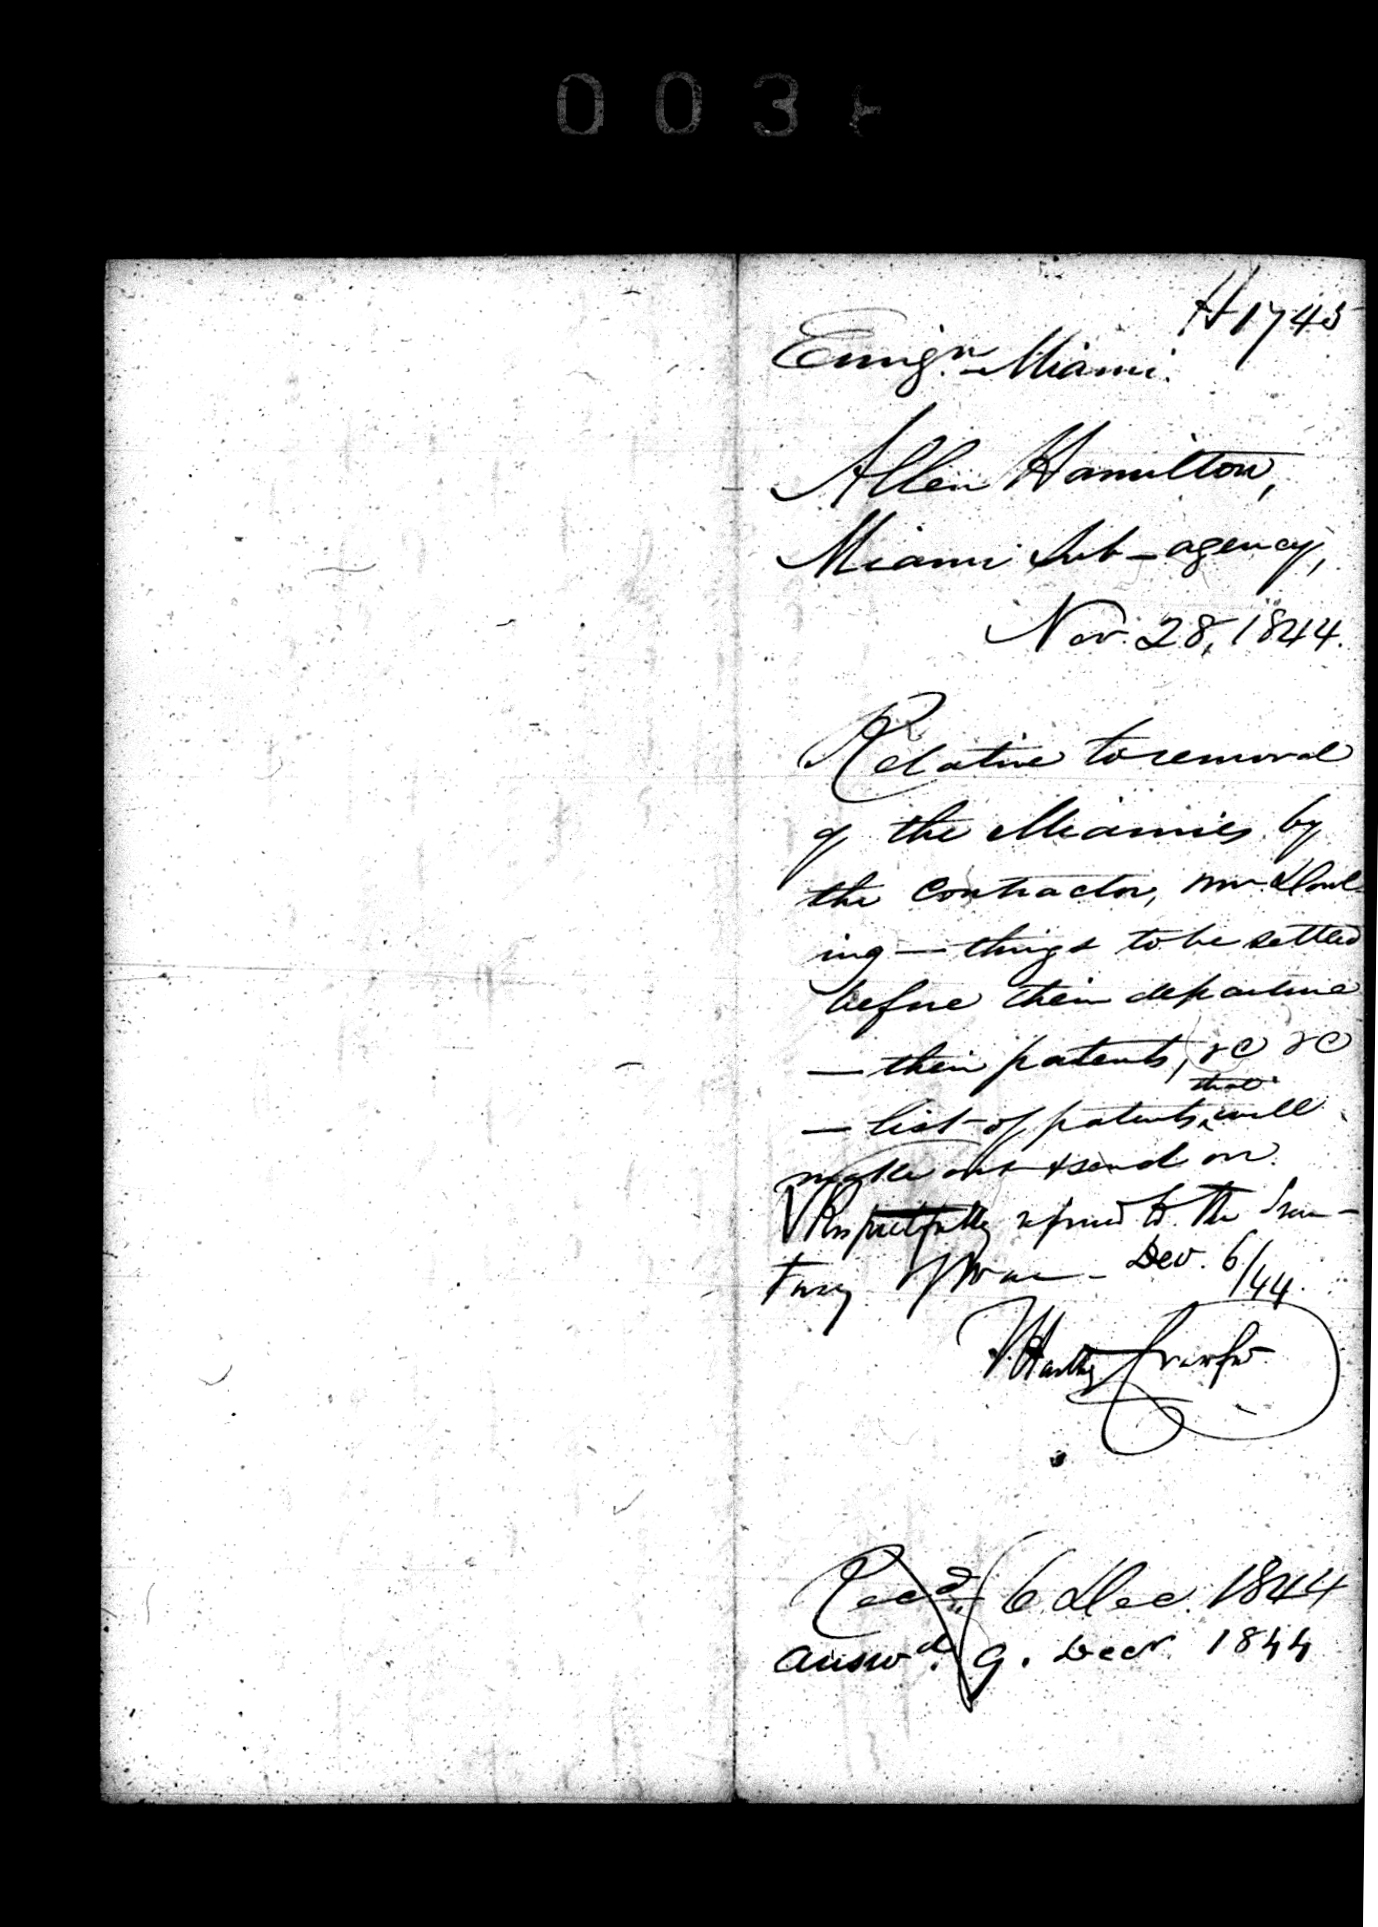 003
H1745
Emign. Miami.
Allen Hamilton,
Miami Sub-agency,
Nov. 28, 1844.
Relative to removal
of the Miamies by
the Contractor, Mr Dowl-
ing — things to be settled
before their departure
— their patents, &c &c
that
— list of patents, will
make out & send on.
Respectfully referred to the Secre-
tary of War — Dec. 6/44.
T. Hartley Crawford
Recd. 6 Dec. 1844
answd. 9. Decr. 1844